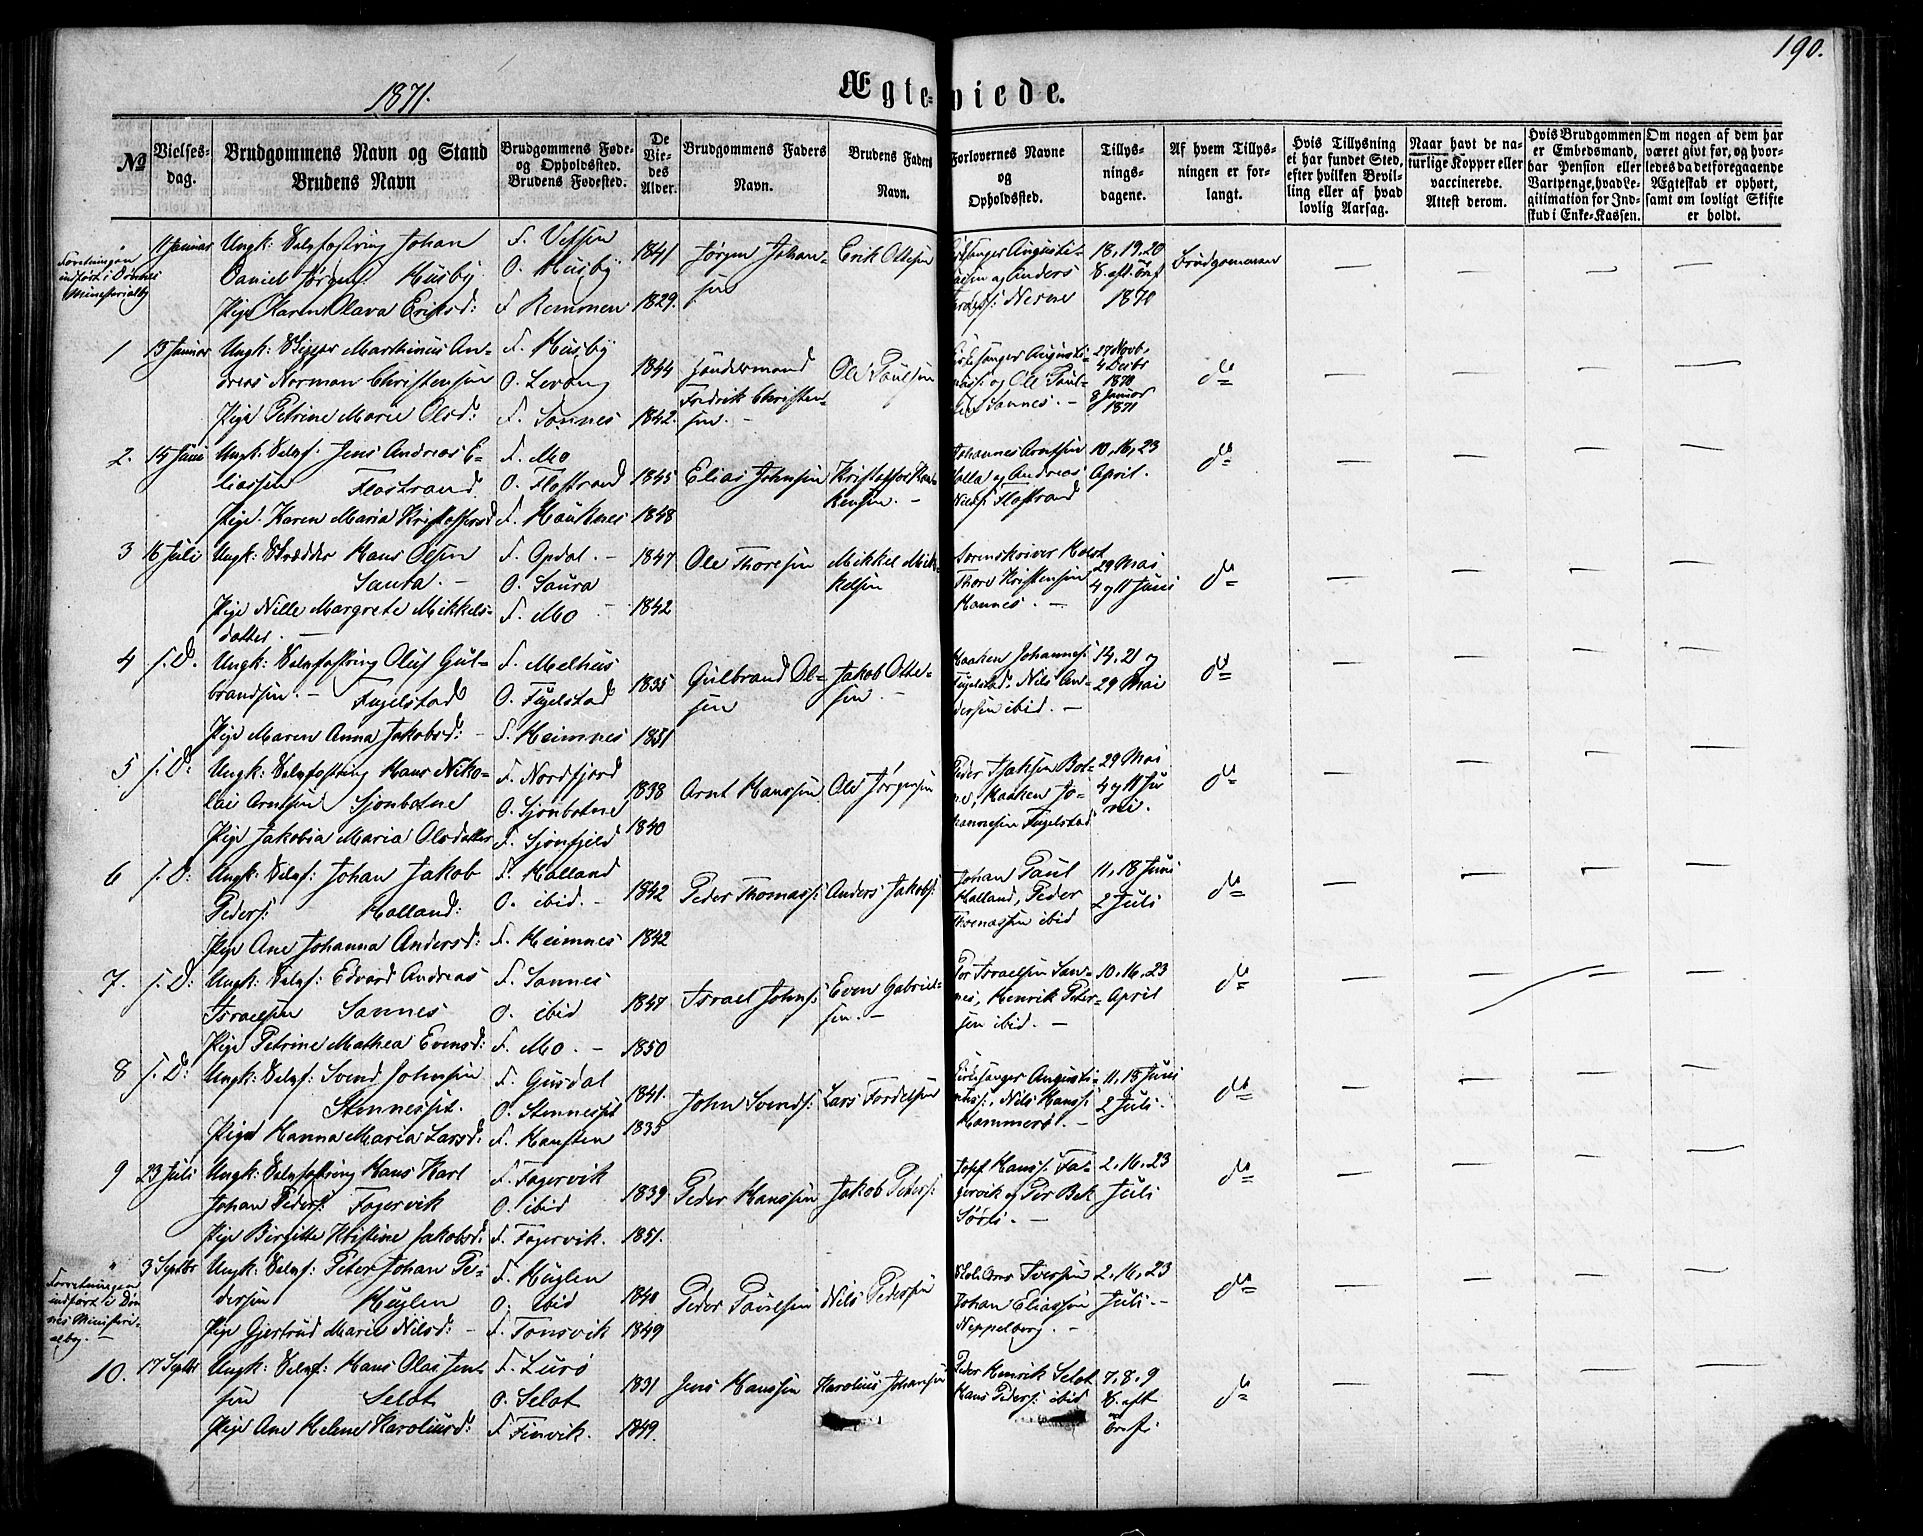 190.
1871.
Ægteviede.
№
Vielses-
dag.
Brudgommens Navn og Stand
Brudens Navn
Brudgommens Føde-
og Opholdssted.
Brudens Fødested.
De
Vie-
des
Alder.
Brudgommens Faders
Navn.
Brudens Faders
Navn.
Forlovernes Navne
og
Opholdssted.
Tillys-
nings-
dagene.
Af hvem Tillys-
ningen er for-
langt.
Hvis Tillysning
ei har fundet Sted,
efter hvilken Bevil-
ling eller af hvad
lovlig Aarsag.
Naar havt de na-
turlige Kopper eller
vaccinerede.
Attest derom.
Hvis Brudgommen
er Embedsmand,
har Pension eller
Vartpenge, hvad Le-
gitimation for Ind-
skud i Enke-Kassen.
Om nogen af dem har
været givt før, og hvor-
ledes da det foregaaende
Ægteskab er ophørt,
samt om lovligt Skifte
er holdt.
Forretningen
indført i Dønnes
Ministerialbog
11 Januar Ungk: Selvfostring Johan
Daniel Jørgens: Husby
Pige Karen Olava Eriksd:
F. Vefsen
O. Husby
F. Remmen
1841
1829.
Jørgen Johan-
sen
Erik Ottesen
Kirkesanger Augusti-
nussen og Anders
Nesne
18, 19, 20
S. eft.
1870
Brudgommen
1 13 Januar Ungk: Skipper Marthinus An-
dreas Norman Christensen
Pige Petrine Marie Olsd:
F. Husby
O. Levang
F. Sannes
1844
1842.
Søndermand
Fredrik Christen-
sen. -
Ole Paulsen
Kirkesanger Augusti-
nuss: og Ole Paul-
sen Sannes. -
27 Novb,
4 Decbr
1870
8 Januar
1871
do
2. 14 Juni Ungk: Selvf: Jens Andreas E-
liassen Flostrand
Pige Karen Maria Kristoffersd
F. Mo
O. Flostrand
F. Hauknes
1845
1848
Elias Johnsen
Kristoffer Han-
kensen. -
Johannes Arntsen
Holla og Andreas
Niels: Flostrand
10, 16, 23
April.
do
3 16 Juli Ungk: Skrædder Hans Olsen
Saura. -
Pige Nille Margrete Mikkels-
datter. -
F. Opdal. -
O. Saura
F. Mo -
1847
1842
Ole Thoresen
Mikkel Mik-
kelsen
Sorenskriver Holst
Thore Kristensen
Hannes. -
29 Mai
4 og 11 Juni
do
4 s. D. Ungk: Selvfostring Oluf Gul-
brandsen. - Fugelstad
Pige Maren Anna Jakobsd: -
F. Melhus
O. Fugelstad
F. Heimnes
1835
1851
Gulbrand Ol-
sen
Jakob Otte-
sen. -
Haaken Johannes:
Fugelstad. Nils An-
dersen ibid. -
14, 21 og
29 Mai
do
5 s. D: Ungk: Selvfostring Hans Niko-
lai Arntsen Sjonbotne
Pige Jakobia Maria Olsdatter
F. Nordfjord
O. Sjonbotne
F. Sjonfjeld
1838
1840
Arnt Hanssen
Ole Jørgensen
Peder Isaksen Bot-
ne, Haaken Jo-
hannesen Fugelstad
29 Mai
4 og 11 Ju
ni.
do
6 s. D: Ungk: Selvf: Johan Jakob
Peders: Halland:
Pige Ane Johanna Andersd:
F. Halland
O. ibid. -
F. Heimnes
1842
1842
Peder Thomass:
Anders Jakobs:
Johan Paul
Halland, Peder
Thomassen ibid
11, 18 Juni
2 Juli
do
7. s. D: Ungk: Selvf: Edvard Andreas
Israelsen Sannes
Pige Petrine Mathea Evensd:
F. Sannes
O. ibid
F. Mo. -
1847
1850
Israel Johns:
Even Gabriel-
sen. -
Per Israelsen San-
nes, Henrik Peter-
sen ibid. -
10, 16, 23
April
do
8 s. D: Ungk: Selvf: Svend Johnsen
Stennesset.
Pige Hanna Maria Larsd:
F. Gusdal
O. Stennesset
F. Hansten
1841.
1835
John Svends:
Lars Fordelsen
Kirkesanger Augusti-
nuss:. Nils Hanss:
Hammerø. -
11, 18 Juni
2 Juli.
do
9 23 Juli Ungk: Selvfostring Hans Karl
Johan Peders: Fagervik
Pige Birgitte Kristine Jakobsd:
F. Fagervik
O. ibid
F. Fagervik.
1839
1851.
Peder Hanssen
Jakob Peters:
Hanss: Fa-
gervik og Per Bek
Sørli. -
2, 16, 23
Juli
do
Forretningen
indført i Døn
nes Ministeri-
albog. -
3 Septbr Ungk: Selvf: Peter Johan Pe-
dersen Huglen
Pige Gjertrud Marie Nilsd: -
F. Huglen
O. ibid
F. Tonsvik
1840
1849
Peder Paulsen
Nils Pedersen
Iversen
Johan Eliassen
Neppelberg. -
2, 16, 23
Juli. -
do
10. 17 Septbr Ungk: Selvf: Hans Olai Jen-
sen Seløt
Pige Ane Helene Karoliusd:
F. Lurø
O. Seløt
F. Finvik.
1831
1849.
Jens Hanssen
Karolius Johansen
Peder Henrik Seløt
Hans Peders: ibid
7, 8, 9
S. eft
do